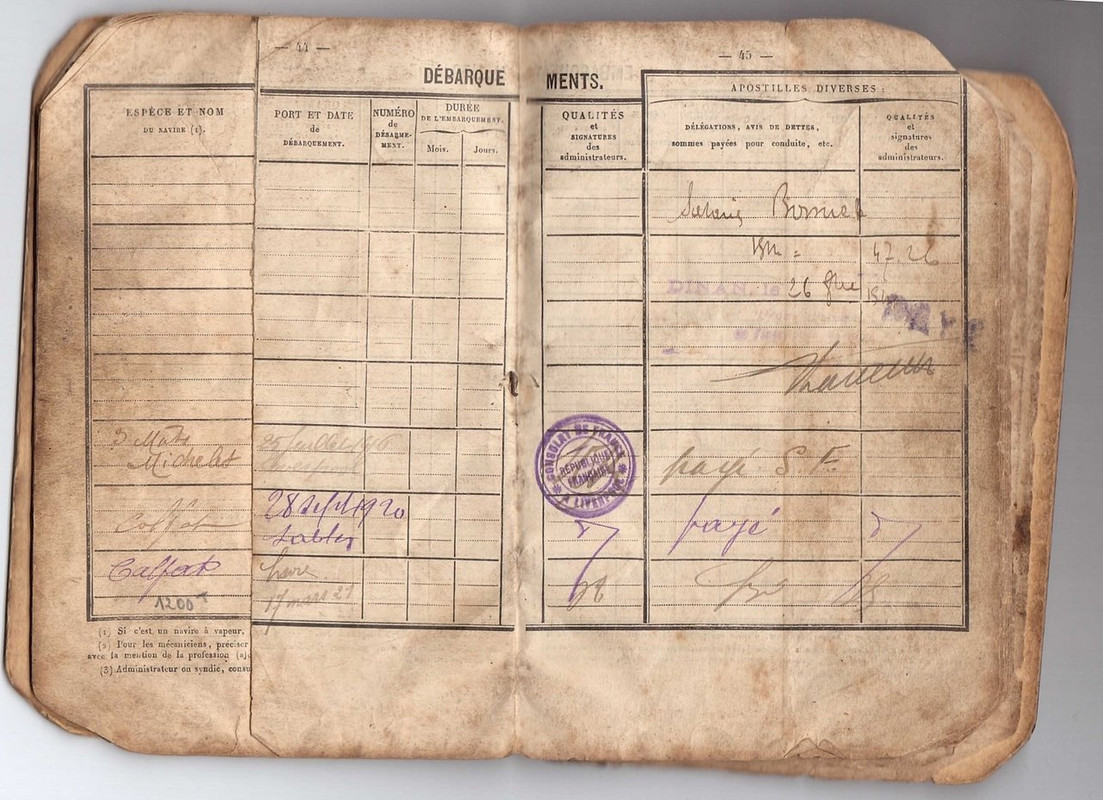 — 44 —
— 45 —
DÉBARQUE MENTS.
ESPÈCE ET NOM
DU NAVIRE (1).
PORT ET DATE
de
DÉBARQUEMENT.
NUMÉRO
de
DÉBARQUE-
MENT.
DURÉE
DE L'EMBARQUEMENT.
Mois.
Jours.
QUALITÉS
et
SIGNATURES
des
administrateurs.
APOSTILLES DIVERSES :
DÉLÉGATIONS, AVIS DE DETTES,
sommes payées pour conduite, etc.
QUALITÉS
et
signatures
des
administrateurs.
47.26
DINAN, le 26
3 Mâts
Michelet
CONSULAT DE FRANCE
RÉPUBLIQUE
FRANÇAISE
A LIVERPOOL
payé S. F.
28 sept 1920
Sables
payé
Calfat
1200
havre
17 mars 21
(1) Si c'est un navire à vapeur,
(2) Pour les mécaniciens, préciser
avec la mention de la profession (aj
(3) Administrateur ou syndic, consu